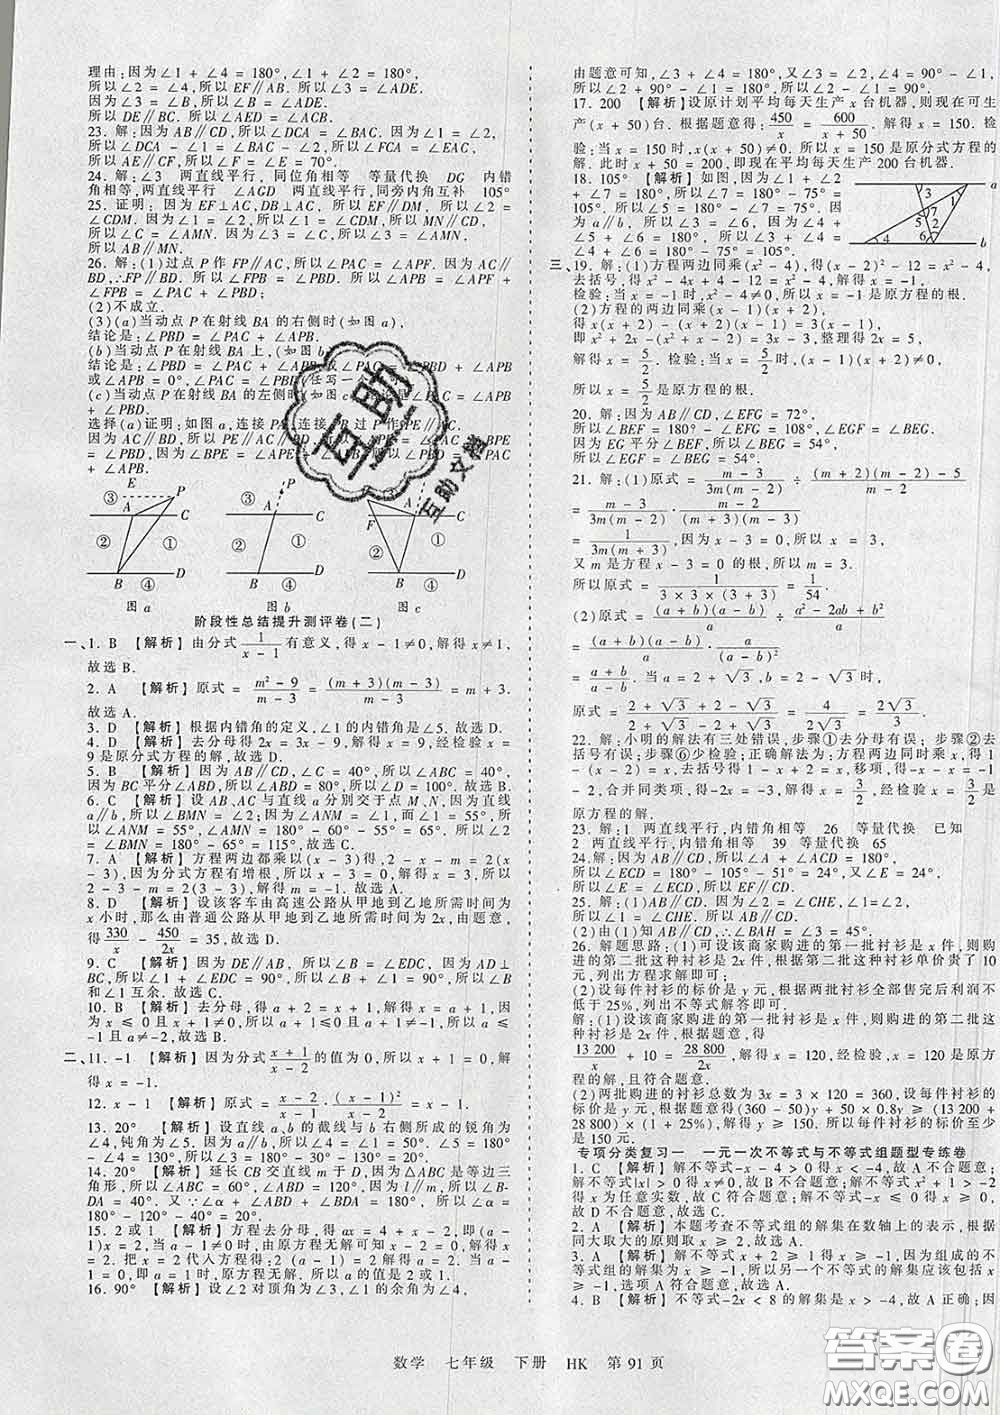 理由:因为∠1 + ∠4 = 180°,∠1 + ∠2 = 180°,
所以∠2 = ∠4,所以EF∥AB. 所以∠3 = ∠ADE.
因为∠3 = ∠B,所以∠ADE = ∠B.
所以DE∥BC. 所以∠AED = ∠ACB.
23. 解:因为AB∥CD,所以∠DCA = ∠BAC,因为∠1 = ∠2,
所以∠DCA - ∠1 = ∠BAC - ∠2,所以∠FCA = ∠EAC,
所以AE∥CF,所以∠F = ∠E = 70°.
24. 解:∠3 两直线平行，同位角相等 等量代换 DG 内错
角相等,两直线平行 ∠AGD 两直线平行,同旁内角互补 105°
25. 证明：因为EF⊥AC,DB⊥AC,所以EF∥DM,所以∠2 =
∠CDM. 因为∠1 = ∠2,所以∠1 = ∠CDM,所以MN∥CD,所
以∠C = ∠AMN. 因为∠3 = ∠C,所以∠3 = ∠AMN.
26. 解:(1)过点P作FP∥AC,所以∠PAC = ∠APF. 因为AC∥
BD,∴FP∥BD,所以∠FPB = ∠PBD,所以∠APB = ∠APF +
∠FPB = ∠PAC + ∠PBD;
(2)不成立.
(3)(a)当动点P在射线BA的右侧时(如图a),
结论是:∠PBD = ∠PAC + ∠APB;
(b)当动点P在射线BA上,(如图b)
结论是:∠PBD = ∠PAC + ∠APB或∠PAC = ∠PBD + ∠APB
或∠APB = 0°,∠PAC = ∠PBD(任写一
(c)当动点P在射线BA的左侧时(如图
+ ∠PBD.
选择(a)证明:如图a,连接PA,连接PB过P作PE∥AC
因为AC∥BD,所以PE∥AC∥BD,所以∠BPE
= ∠PAC + ∠APB. 因为AC∥BD,所以∠BPE
= ∠PBD,所以∠PBD = ∠PAC + ∠APB.
图a 图b 图c
阶段性总结提升测评卷(二)
一、1. B 【解析】由分式1/(x - 1)有意义,得x - 1≠0,解得x≠1,
故选B.
2. A 【解析】原式 = (m² - 9)/(m - 3) = (m + 3)(m - 3)/(m - 3) = m + 3.
故选A.
3. D 【解析】根据内错角的定义,∠1的内错角是∠5. 故选D.
4. D 【解析】去分母得2x = 3x - 9,解得x = 9,经检验x =
9是原分式方程的解,故选D.
5. B 【解析】因为AB∥CD,所以∠ABC = ∠C = 40°,因
为BC平分∠ABD,所以∠ABD = 80°,所以∠D = 100°. 故选B.
6. C 【解析】设AB、AC与直线a分别交于点M、N,因为直线
a∥b,所以∠BMN = ∠2,因为∠ANM = ∠1,而∠1 = 55°,所
以∠ANM = 55°,∠AMN = 180° - 60° - 55° = 65°,所以∠2 =
∠BMN = 180° - 65° = 115°,故选C.
7. A 【解析】方程两边都乘以(x - 3)得,2 - x - m = 2(x
- 3),因为分式方程有增根,所以x - 3 = 0,解得x = 3,所以2
- 3 - m = 2(3 - 3),解得m = -1. 故选A.
8. D 【解析】设该客车由高速公路从甲地到乙地所需时间为
x小时,那么由普通公路从甲地到乙地所需时间为2x,由题意,
得330/x - 450/2x = 35,故选D.
9. C 【解析】因为DE∥AB,所以∠B = ∠EDC,因为AD⊥
BC,所以∠1 + ∠EDC = 90°,所以∠B + ∠1 = 90°,所以∠B
和∠1互余. 故选C.
10. B 【解析】去分母,得a + 2 = x + 1,解得x = a + 1,因
为x ≤ 0且x + 1≠0,所以a + 1≤0且a + 1≠-1,所以a≤
-1且a≠-2. 故选B.
二、11. -1 【解析】因为分式(x + 1)/(x - 1)的值为0,所以x + 1 = 0,解
得x = -1.
12. x - 1 【解析】原式 = (x - 1)/x · x · (x - 1)²/(x - 1)² = x - 1.
13. 20° 【解析】设直线a,b的截线与b右侧所成的锐角为
∠4,钝角为∠5. 因为a∥b,所以∠4 = ∠1 = 50°,∠5 = 180° -
∠4 = 130°,∠3 = 180° - 30° - 130° = 20°.
14. 20° 【解析】延长CB交直线m于D,因为△ABC是等边三
角形,所以∠ABC = 60°,因为l∥m,所以∠1 = 40°. 所以∠B -
DA = 40°,又因为∠ABD = 180° - 60° = 120°,所以∠α =
180° - 120° - 40° = 20°.
15. 2或1 【解析】方程去分母,得ax = 4 + x - 2,即(a
- 1)x = 2,当a - 1 = 0时,由原方程无解可知x - 2 = 0,解得x
= 2. 把x = 2代入方程得:2(a - 1) = 2解得:a = 2. 当a - 1
= 0,即a = 1时,原方程无解. 所以a的值是2或1.
16. 90° 【解析】设∠2对顶角为∠3,∠1的余角为∠4,
由题意可知,∠3 + ∠4 = 180°,又∠3 = ∠2,∠4 = 90° - ∠1,
所以∠2 + 90° - ∠1 = 180°,所以∠2 - ∠1 = 90°.
17. 200 【解析】设原计划平均每天生产x台机器,则现在可生
产(x + 50)台. 根据题意得:450/x = 600/(x + 50). 解得x = 150. 检
验:当x = 150时,x(x + 50)≠0. 所以x = 150是原分式方程的
解. 此时x + 50 = 200,即现在平均每天生产200台机器.
18. 105° 【解析】如图,因为∠1 + ∠2
+ ∠7 = 180°,所以∠7 = 180° - 75° =
105°. 所以∠5 = ∠7 = 180° - 75° =
105°. 因为a∥b,所以∠3 = ∠6,所以∠3 +
∠4 + ∠5 = ∠6 + ∠4 + ∠5 = 180°,所以
∠3 + ∠4 = 180° - ∠5 = 180° - 105°
= 75°.
三、19. 解:(1)方程两边同乘(x² - 4),得(x - 2)² - 12 = x² - 4,
去括号,得x² - 4x + 4 - 12 = x² - 4,解得x = -1,
检验:当x = -1时,x² - 4≠0,所以x = -1是原方程的根.
(2)方程的两边同乘(x - 1)(x + 2),
得x(x + 2) - (x + 2)(x - 1) = 3,
即x² + 2x - (x² + x - 2) = 3,整理得2x = 5,
解得x = 5/2. 检验:当x = 5/2时,(x - 1)(x + 2)≠0.
所以x = 5/2是原方程的根.
20. 解:因为AB∥CD,∠EFG = 72°,
所以∠BEF = 180° - ∠EFG = 108°,∠EGF = ∠BEG.
因为EG平分∠BEF,所以∠BEG = ∠FEG.
所以∠EGF = ∠BEG = 54°.
21. 解:(1)原式 = (m - 3)/(3m(m - 2)) ÷ ((m + 2)(m - 2) - 5)/(m - 2)
= (m - 3)/(3m(m - 2)) · (m - 2)/((m + 3)(m - 3))
= 1/(3m(m + 3)),因为x - 3 = 0,所以x = 3,
又m是方程x - 3 = 0的根,所以m = 3,
所以原式 = 1/(3 × 3 × (3 + 3)) = 1/54.
(2)原式 = (a + b)(a - b)/a ÷ (a² - 2ab + b²)/a
= (a + b)(a - b)/a · a/(a - b)²
= (a + b)/(a - b). 当a = 2 + √3,b = 2 - √3时,
原式 = (2 + √3 + 2 - √3)/(2 + √3 - 2 + √3) = 4/(2√3) = 2√3/3.
22. 解:小明的解法有三处错误,步骤①去分母有误;步骤②去
括号有误;步骤⑥少检验;正确解法为:方程两边同时乘x,得1
- (x - 2) = x,去括号得1 - x + 2 = x,移项,得-x - x = -1
- 2,合并同类项,得-2x = -3,解得x = 3/2,经检验x = 3/2是
原方程的解.
23. 解:1 两直线平行,内错角相等 26 等量代换 已知
2 两直线平行,内错角相等 39 等量代换 65
24. 解:因为AB∥CD,所以∠A + ∠ACD = 180°.
所以∠ECD = 180° - 108° - 51° = 21°. 因为∠E = 21°,
所以∠E = ∠ECD,所以EF∥CD,所以EF∥AB.
25. 解:(1)AB∥CD. 因为EF∥CG,所以∠CHE = ∠2. 因为∠1=∠2,
所以∠1 = ∠CHE. 所以AB∥CD.
(2)由(1)知AB∥CD,∴∠BEH = ∠3 = 45°.
26. 解题思路:(1)可设该商家购进的第一批衬衫是x件,则购
进的第二批这种衬衫是2x件,根据第二批这种衬衫单价贵了10
元,列出方程求解即可;
(2)设每件衬衫的标价是y元,根据两批衬衫全部售完后利润不
低于25%,列出不等式解答即可.
解:(1)设该商家购进的第一批衬衫是x件,则购进的第二批这
种衬衫是2x件,根据题意,得
13 200/x + 10 = 28 800/2x,解得x = 120,经检验,x = 120是原方
程的解,且符合题意.
(2)两批购进的衬衫总数为3x = 3 × 120 = 360,设每件衬衫的
标价是y元,根据题意得(360 - 50)y + 50 × 0.8y ≥ (13 200 +
28 800) × (1 + 25%),解得y ≥ 150. 所以每件衬衫的标价至少
是150元.
专项分类复习一 一元一次不等式与不等式组题型专练卷
1. C 【解析】解不等式-x - 4 > 0得x < -4,故A不合题意;
解不等式|x| > 0得x≠0,故B不合题意;不等式x² + 1 > 0的解
集为任意实数,故C符合题意;不等式x² > 0的解集为x≠0,
故D不合题意. 故选C.
2. A 【解析】本题考查不等式组的解集在数轴上的表示,根据
同大取大的原则则x ≥ 3,故选A.
3. A 【解析】x + 2 ≥ 1得x ≥ -1,因为组成的不等
式组的解集为x ≥ -1,所以另一个不等式的解集应该包括x
≥ -1,选项A符合题意,故选A.
4. B 【解析】不等式-2x < 8的解集是x > -4,故A正确;因
互助
互助文档
数学 七年级 下册 HK 第91页
答案卷
MXQE.COM